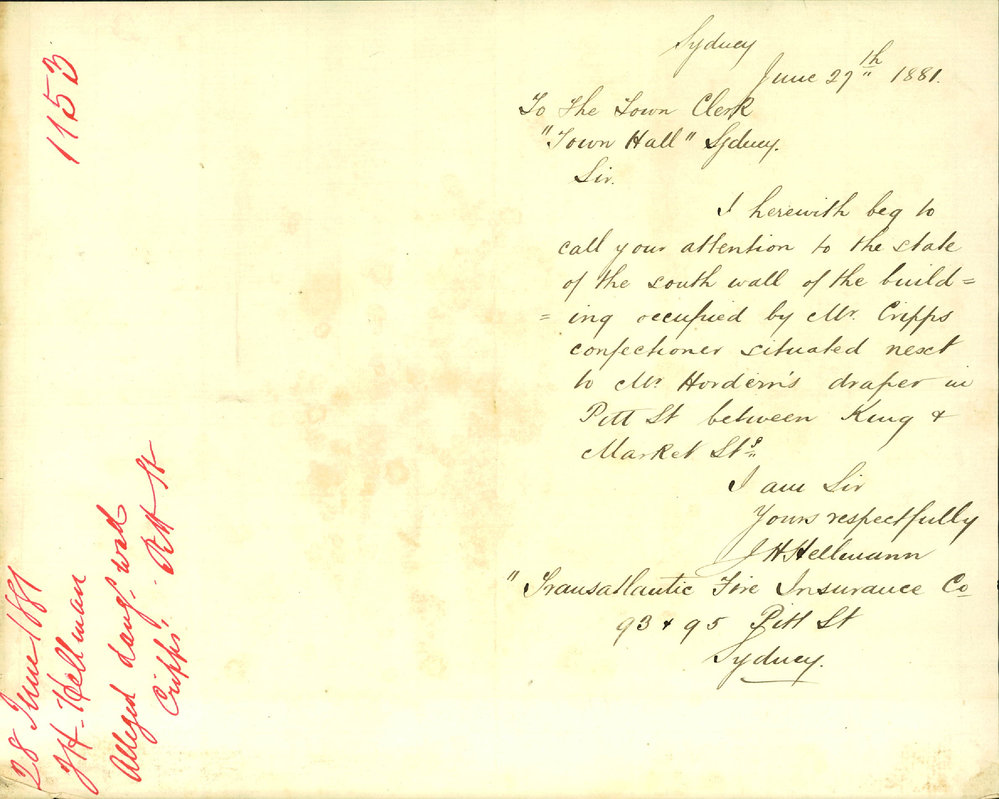 Sydney
June 27th 1881.
To The Town Clerk
"Town Hall" Sydney.
Sir.
I herewith beg to
call your attention to the state
of the south wall of the build=
=ing occupied by Mr. Cripps
confectioner situated next
to Mr Hordern's draper in
Pitt St between King &
Market Sts.
I am Sir
Yours respectfully
J H Hellmann
"Transatlantic Fire Insurance Co
93 & 95 Pitt St
Sydney.
1153
28 June 1881
JH Hellman
Alleged dang.s wall
Cripps' Pitt St